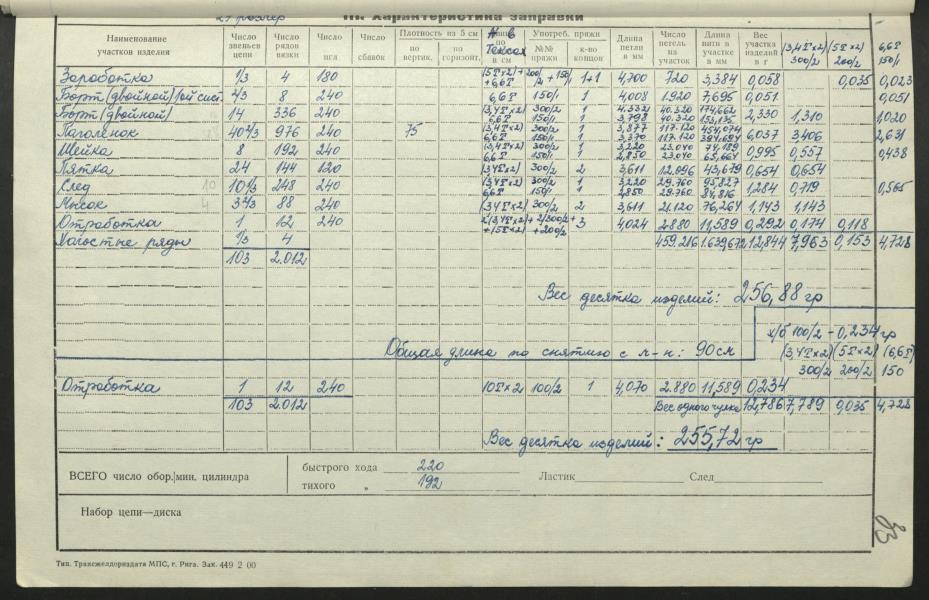 21 размер
III. Характеристика заправки
Наименование участков изделия | Число звеньев цепи | Число рядов вязки | Число игл | Число сбавок | Плотность на 5 см по вертик. | по горизонт. | в Тексах | Употреб. пряжи №№ пряжи | к-во концов | Длина петли в мм | Число петель на участок | Длина нити в участке в мм | Вес участка изделий в г | (3,4Тх2) 300/2 | (5Тх2) 200/2 | 6,6Т 150/1
Заработка 1/3 4 180 (5Тх2)+ +6,6Т 200/2 + 150/1 1+1 4,700 720 3,384 0,058 0,035 0,023
Борт (двойной) 2/3 8 240 6,6Т 150/1 1 4,008 1.920 7,695 0,051 0,051
Борт (двойной) 14 336 240 (3,4Тх2) 300/2 1 4.332 40.320 174,662 2,330 1,310 1,020
6,6Т 150/1 1 3,798 40.320 153,135
Паголенок 40 2/3 976 240 75 (3,4Тх2) 300/2 1 3,877 117.120 454,074 6,037 3,406 2,631
6,6Т 150/1 1 3,370 117.120 394,694
Шейка 8 192 240 (3,4Тх2) 300/2 1 3,220 23.040 74,189 0,995 0,557 0,438
6,6Т 150/1 1 2,850 23.040 65,664
Пятка 24 144 120 (3,4Тх2) 300/2 2 3,611 12.096 43,679 0,654 0,654
След 10 1/3 248 240 (3,4Тх2) 300/2 1 3,220 29.760 95,827 1,284 0,719 0,565
6,6Т 150/1 1 2,850 29.760 84,816
Мысок 3 2/3 88 240 (3,4Тх2) 300/2 2 3,611 21.120 76,264 1,143 1,143
Отработка 1 12 240 2(3,4Тх2)+ +(5Тх2) 2/300/2+ +200/2 3 4,024 2.880 11,589 0,292 0,174 0,118
Холостые ряды 1/3 4 459.216 1.639,672 12,844 7,963 0,153 4,728
103 2.012
Вес десятка изделий: 256,88 гр
х/б 100/2 – 0,234 гр
Общая длина по снятию с м-н: 90 см (3,4Тх2) (5Тх2) (6,6Т)
300/2 200/2 150
Отработка 1 12 240 10Тх2 100/2 1 4,070 2.880 11,589 0,234
103 2.012 Вес одного чулка 12,786 7,789 0,035 4,728
Вес десятка изделий: 255,72 гр
ВСЕГО число обор. мин. цилиндра быстрого хода 220 Ластик След
тихого „ 192
Набор цепи—диска
Тип. Трансжелдориздата МПС, г. Рига. Зак. 449 2 00